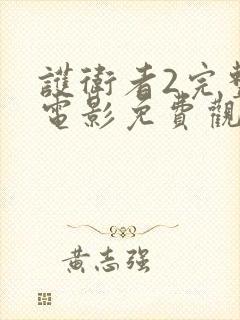 護衛者2完整
電影免費觀
黃志强